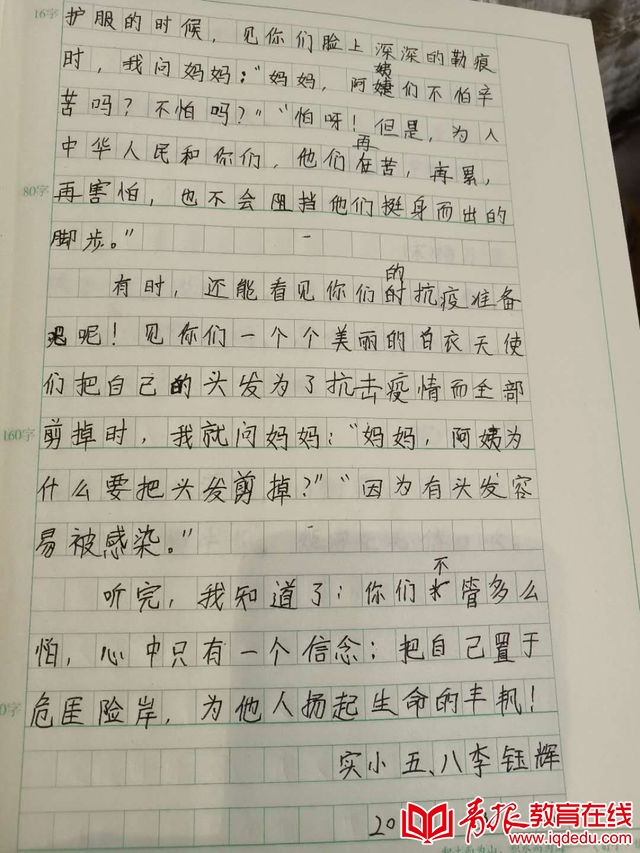 16字
护服的时候，见你们脸上深深的勒痕
时，我问妈妈："妈妈，阿姨们不怕辛
苦吗？不怕吗？""怕呀！但是，为人
中华人民和你们，他们再苦，再累，
80字
再害怕，也不会阻挡他们挺身而出的
脚步。"
有时，还能看见你们的抗疫准备
呢！见你们一个个美丽的白衣天使
们把自己的头发为了抗击疫情而全部
160字
剪掉时，我就问妈妈："妈妈，阿姨为
什么要把头发剪掉？""因为有头发容
易被感染。"
听完，我知道了：你们不管多么
怕，心中只有一个信念：把自己置于
危崖险岸，为他人扬起生命的丰帆！
实小五、八李钰辉
20
青报教育在线
www.iqdedu.com